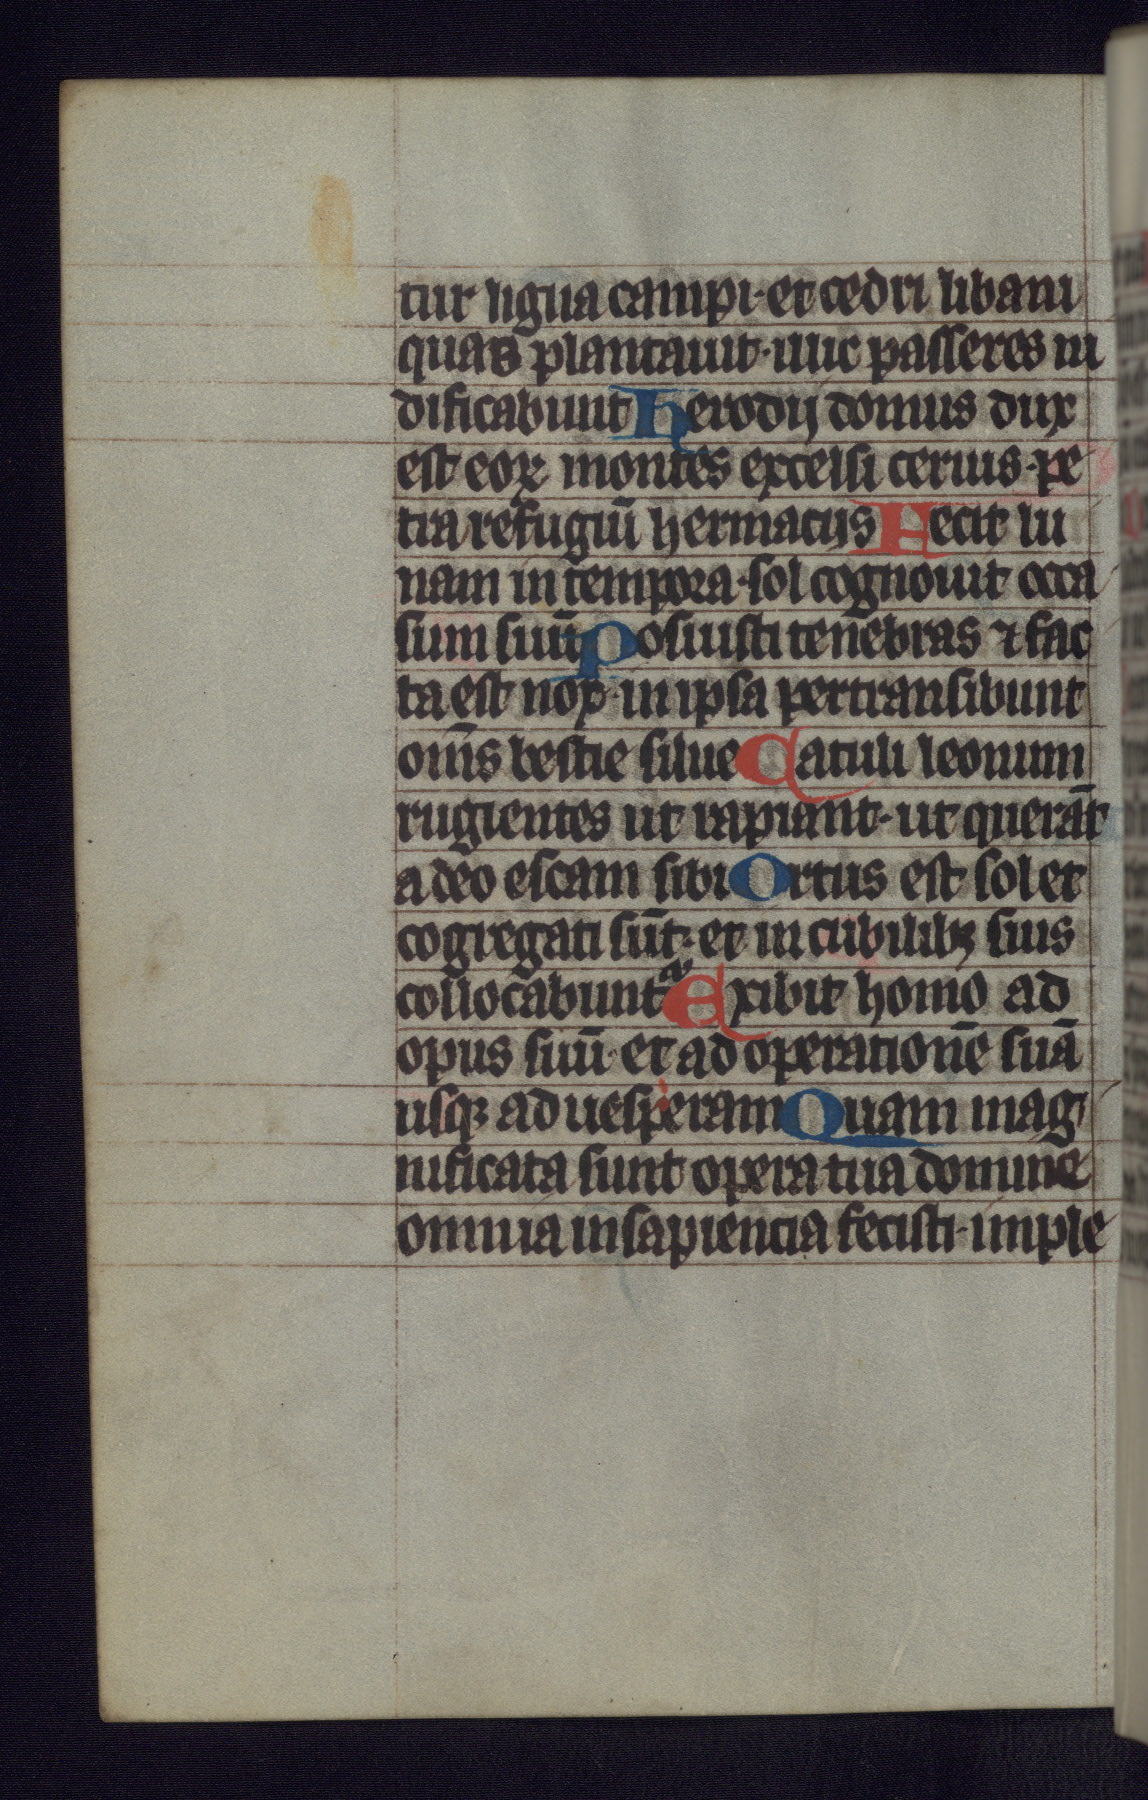 tur ligna campi· et cedri libani
quas plantauit· illic passeres ni
dificabunt Herodij domus dux
est eoꝝ montes excelsi ceruis· pe
tra refugiū hermacijs Fecit lu
nam in tempora· sol cognouit occa
sum suū Posuisti tenebras ⁊ fac
ta est nox· in ipsa pertransibunt
om̄s bestie silue Catuli leonum
rugientes ut rapiant· ut querāt
a deo escam sibi Ortus est sol et
cogregati sūt· et in cubilibꝫ suis
collocabuntᷣ Exibit homo ad
opus suū· et ad operationē suā
usqꝫ ad uesperam Quam mag
nificata sunt opera tua domine
omnia in sapiencia fecisti· imple